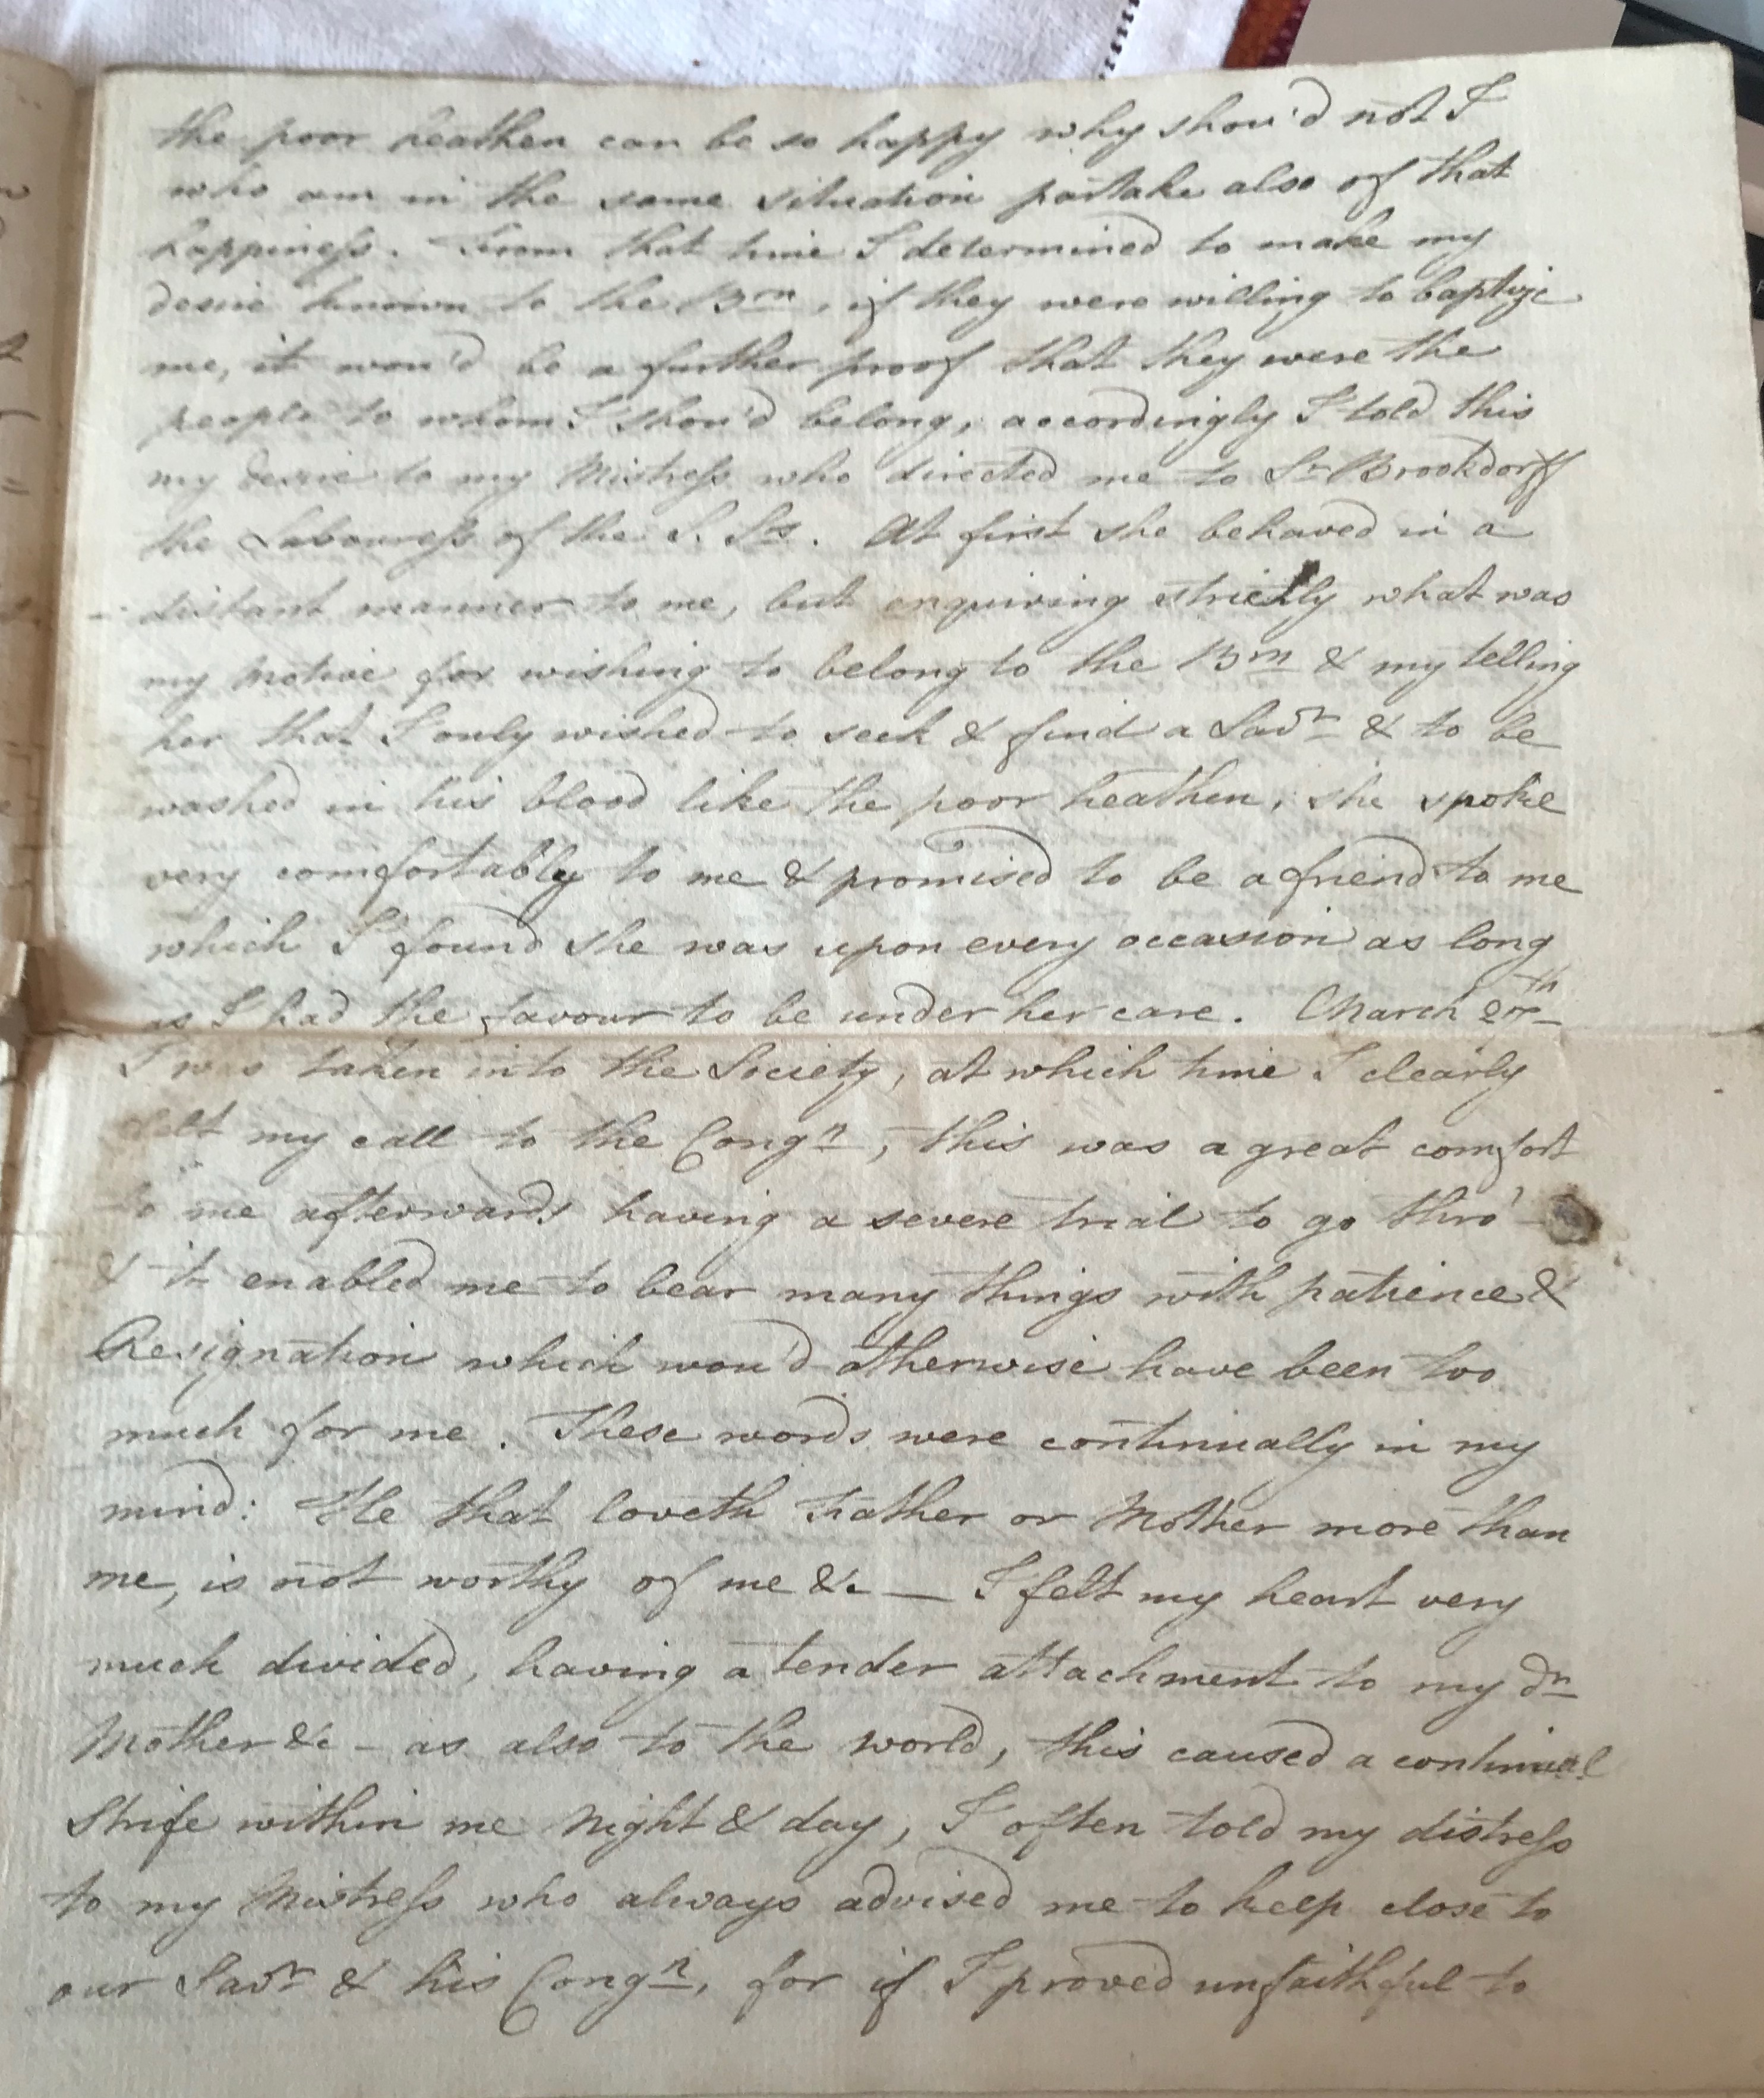 the poor heathen can be so happy why shou'd not I
who am in the same situation partake also of that
happiness. From that time I determined to make my
desire known to the Brn, if they were willing to baptize
me, it wou'd be a further proof that they were the
people to whom I shou'd belong, accordingly I told this
my desire to my Mistress who directed me to Sr Brookdorff
the Labouress of the S. Srs. At first she behaved in a
distant manner to me, but enquiring strictly what was
my Motive for wishing to belong to the Brn & my telling
her that I only wished to seek & find a Savr & to be
washed in his blood like the poor heathen, she spoke
very comfortably to me & promised to be a friend to me
which I found she was upon every occasion as long
as I had the favour to be under her care. March
I was taken into the Society, at which time I clearly
felt my call to the Congn, this was a great comfort
to me afterwards having a severe trial to go thro'
& it enabled me to bear many things with patience &
Resignation which wou'd otherwise have been too
much for me. These words were continually in my
mind: He that loveth Father or Mother more than
me, is not worthy of me &c — I felt my heart very
much divided, having a tender attachment to my dr
Mother &c - as also to the world, this caused a continual
Strife within me Night & day, I often told my distress
to my Mistress who always advised me to keep close to
our Savr & his Congn, for if I proved unfaithful to